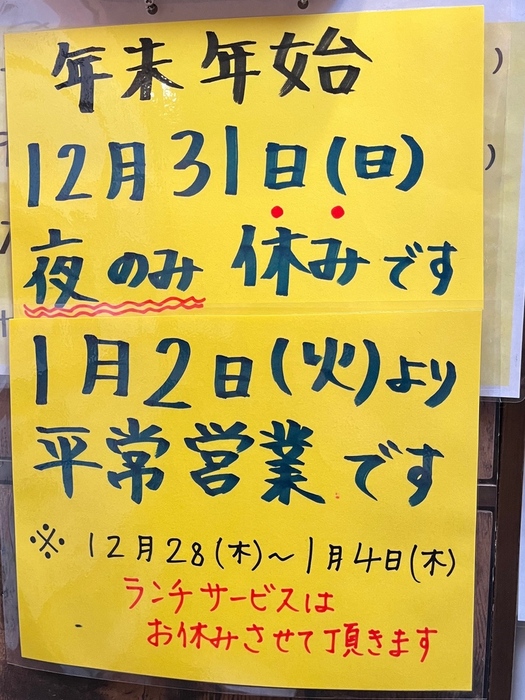 年末年始
12月31日(日)
夜のみ 休みです
1月2日(火)より
平常営業です
※ 12月28(木)～1月4日(木)
ランチサービスは
お休みさせて頂きます